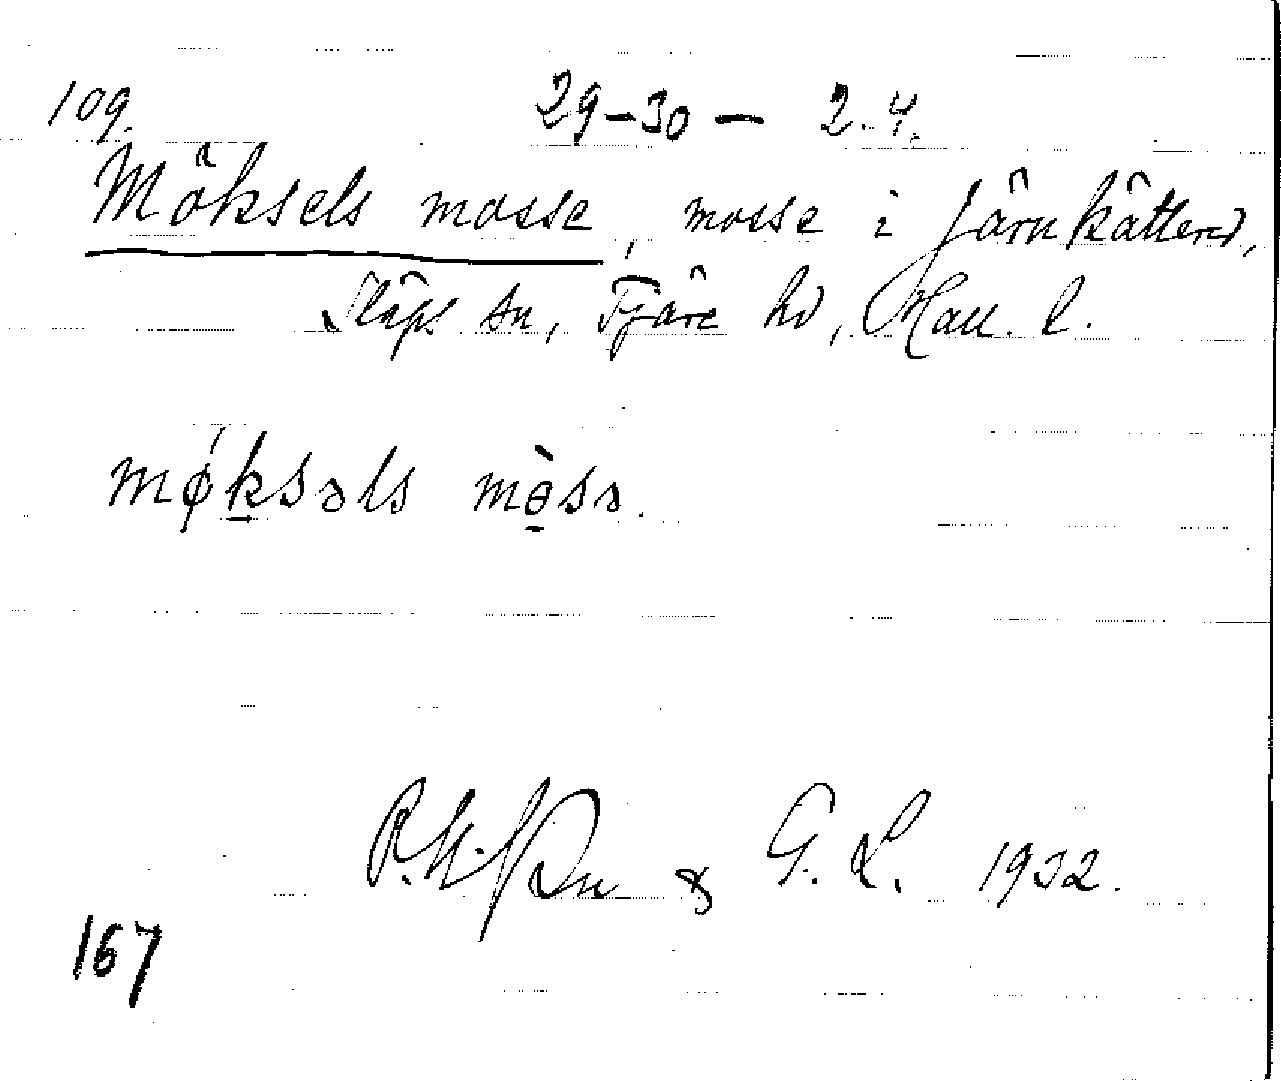 109. 29-30 - 2.4.
Möksels mosse, mosse i Järnkätterd,
Släps sn, Fjäre hd, Hall. l.
mǿksəls mò̱sə.
& G. L. 1932.
167